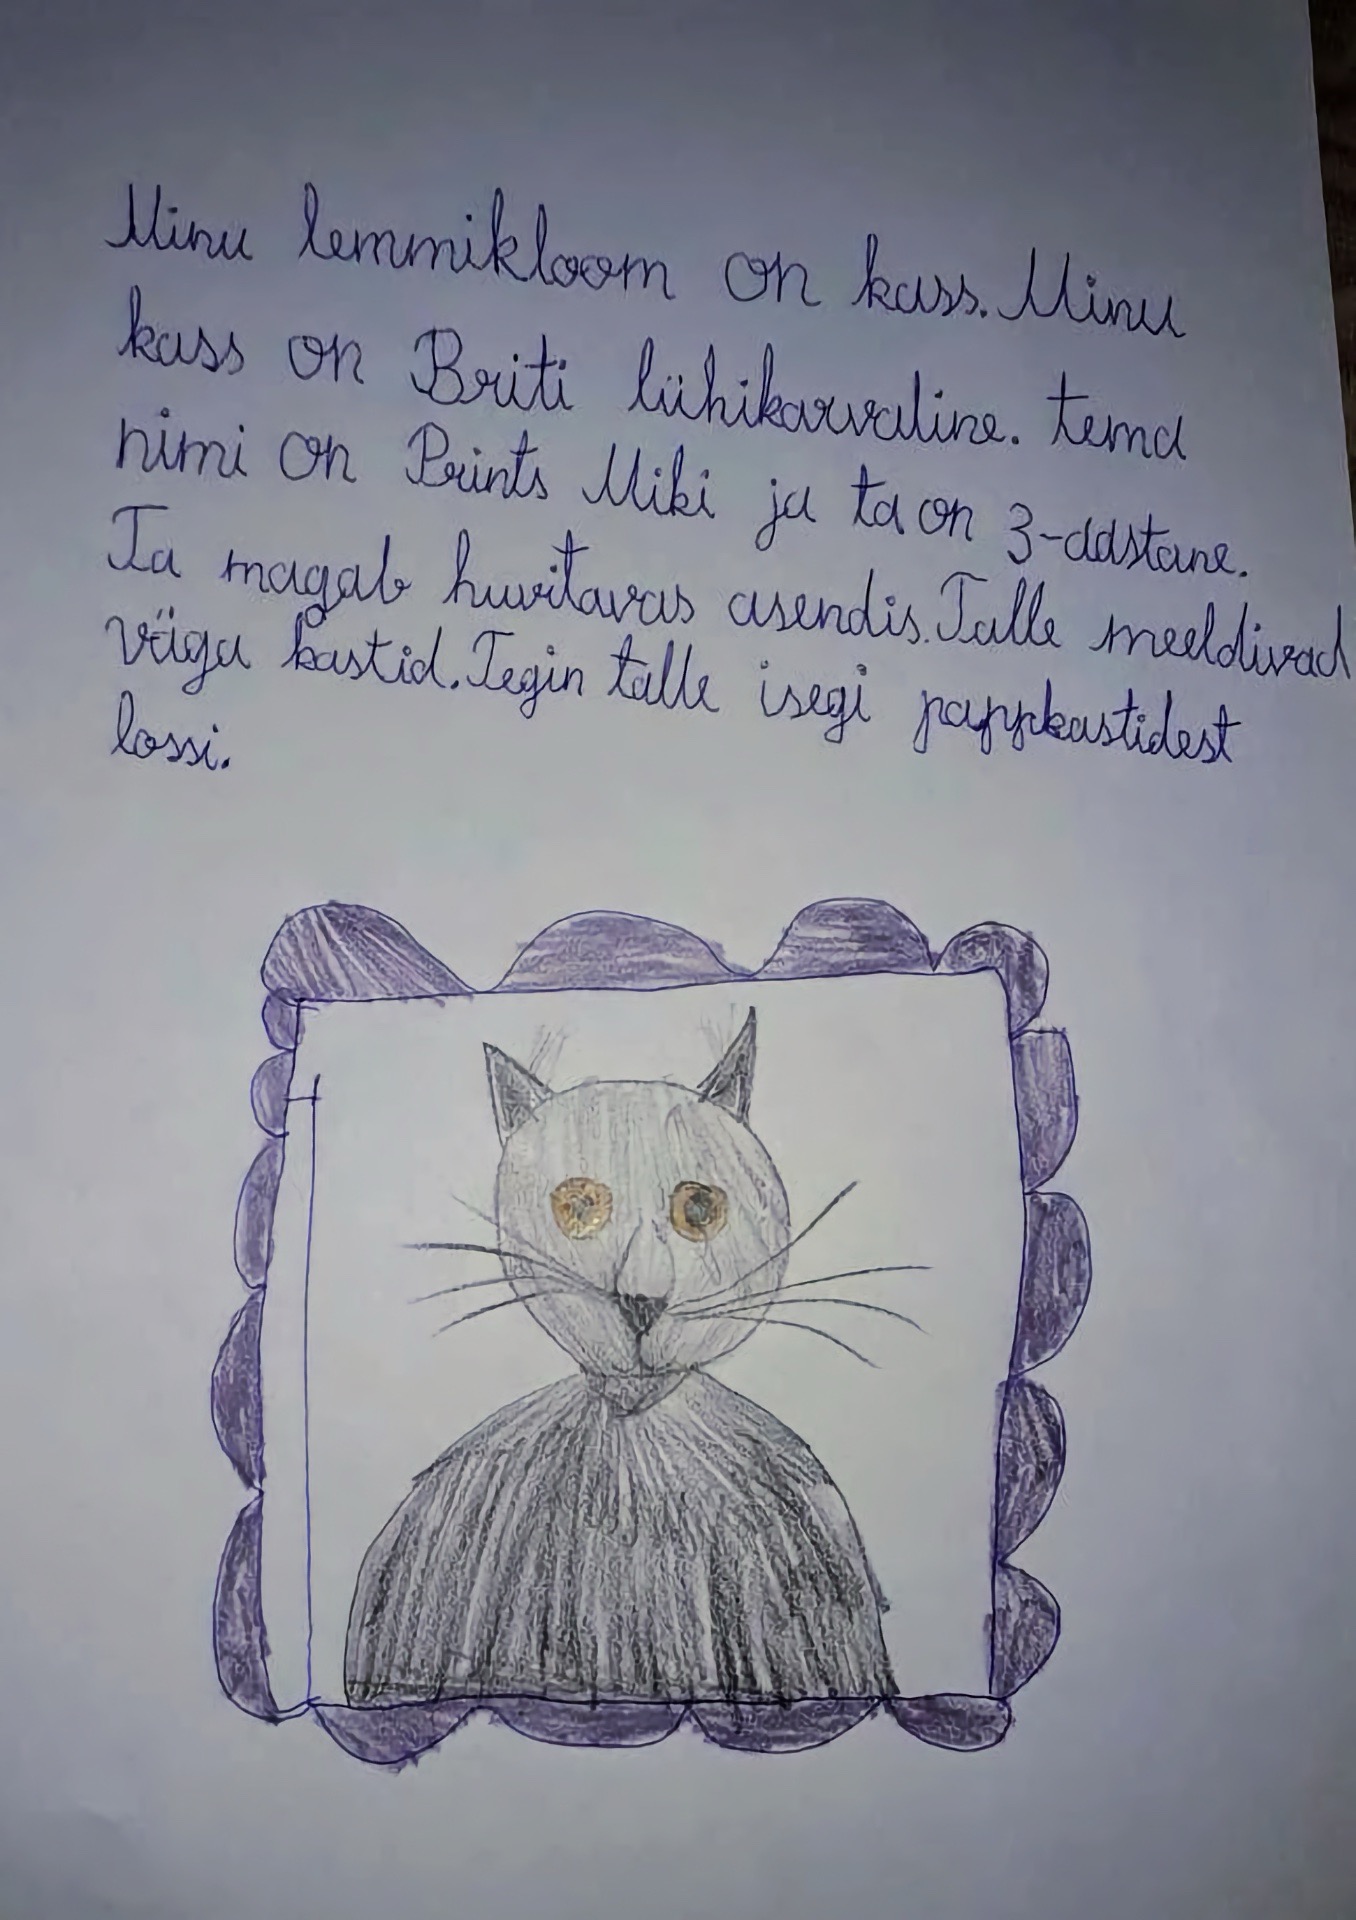 Minu lemmikloom on kass. Minu
kass on Briti lühikarvaline. tema
nimi on Prints Miki ja ta on 3-aastane.
Ta magab huvitavas asendis. Talle meeldivad
väga kastid. Tegin talle isegi pappkastidest
lossi.